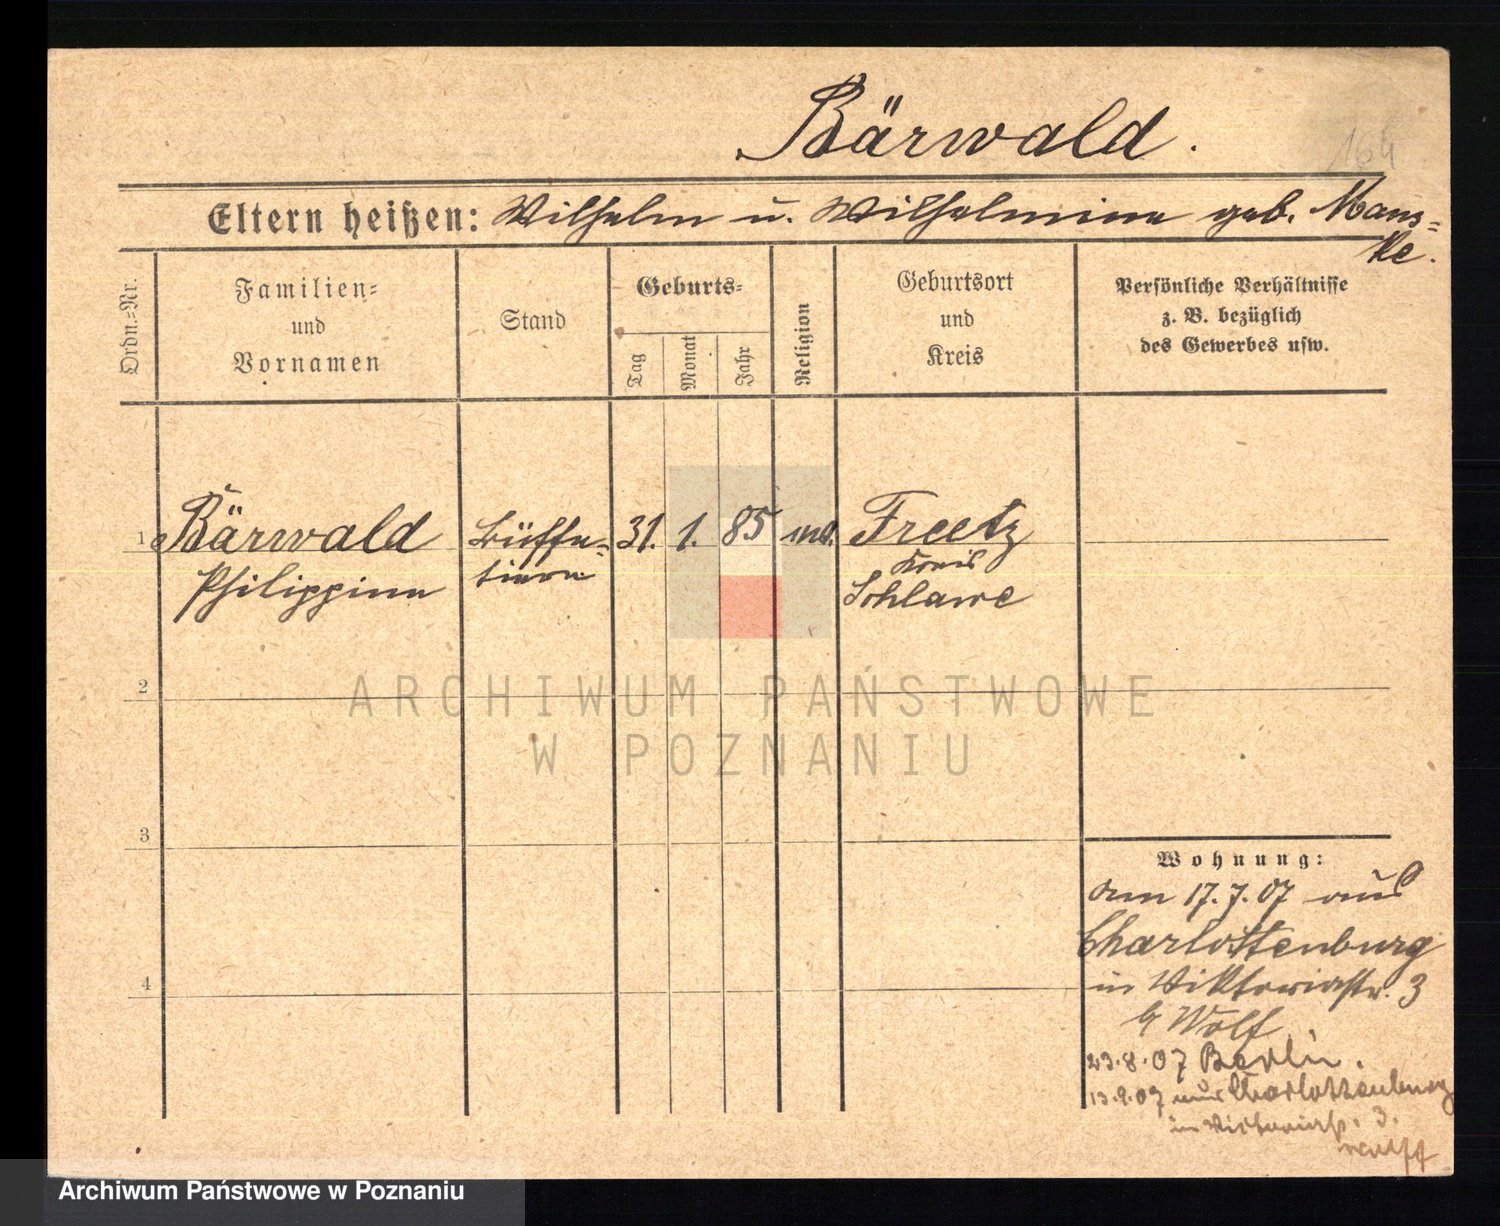 Bärwald.
164
Eltern heißen: Wilhelm u. Wilhelmine geb. Mans=
ke.
Ordn.=Nr.
Familien=
und
Vornamen
Stand
Geburts=
Tag
Monat
Jahr
Religion
Geburtsort
und
Kreis
Persönliche Verhältnisse
z. B. bezüglich
des Gewerbes usw.
1 Bärwald Büffe= 31. 1. 85 Freetz
Philippine tiere Kreis
Schlawe
2
ARCHIWUM PAŃSTWOWE
W POZNANIU
3
Wohnung:
am 17.7.07 aus
Charlottenburg
4
in Viktoriastr. 3
b/ Wolf
23.8.07 Berlin.
13.9.07 aus Charlottenburg
in Victoriastr. 3.
Wolff
Archiwum Państwowe w Poznaniu